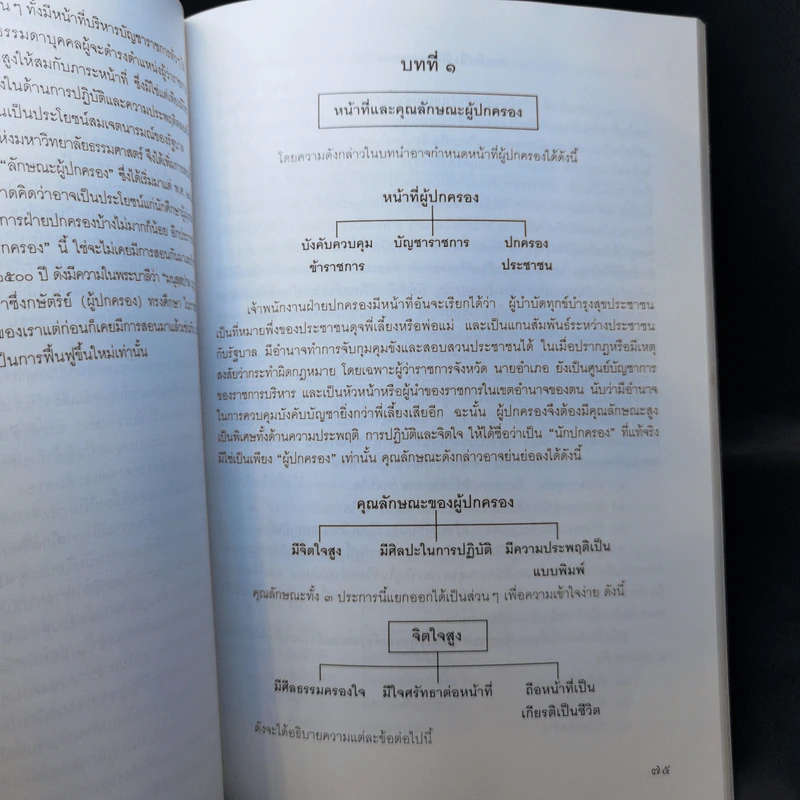 น ๆ ทั้งมีหน้าที่บริหารบัญชาราชการ
ธรรมดาบุคคลผู้จะดำรงตำแหน่งผู้ว่าราชการ
สูงให้สมกับภาระหน้าที่ ซึ่งมิใช่แต่เพียง
งในด้านการปฏิบัติและความประพฤติ
นเป็นประโยชน์สมเจตนารมณ์ของรัฐบาล
ห่งมหาวิทยาลัยธรรมศาสตร์ จึงได้เพิ่มการ
“ลักษณะผู้ปกครอง” ซึ่งได้เริ่มมาแต่ พ.ศ.
าดคิดว่าอาจเป็นประโยชน์แก่นักศึกษา
การฝ่ายปกครองบ้างไม่มากก็น้อย
กครอง” นี้ ใช่จะไม่เคยมีการสอนกันมา
๒๕๐๐ ปี ดังมีความในพระบาลีว่า
าซึ่งกษัตริย์ (ผู้ปกครอง) ทรงศึกษา
ของเราแต่ก่อนก็เคยมีการสอนมาแล้ว
ป็นการฟื้นฟูขึ้นใหม่เท่านั้น
บทที่ ๑
หน้าที่และคุณลักษณะผู้ปกครอง
โดยความดังกล่าวในบทนำอาจกำหนดหน้าที่ผู้ปกครองได้ดังนี้
หน้าที่ผู้ปกครอง
บังคับควบคุม บัญชาราชการ ปกครอง
ข้าราชการ ประชาชน
เจ้าพนักงานฝ่ายปกครองมีหน้าที่อันจะเรียกได้ว่า ผู้บำบัดทุกข์บำรุงสุขประชาชน
เป็นที่หมายพึ่งของประชาชนดุจพี่เลี้ยงหรือพ่อแม่ และเป็นแกนสัมพันธ์ระหว่างประชาชน
กับรัฐบาล มีอำนาจทำการจับกุมคุมขังและสอบสวนประชาชนได้ ในเมื่อปรากฏหรือมีเหตุ
สงสัยว่ากระทำผิดกฎหมาย โดยเฉพาะผู้ว่าราชการจังหวัด นายอำเภอ ยังเป็นศูนย์บัญชาการ
ของราชการบริหาร และเป็นหัวหน้าหรือผู้นำของราชการในเขตอำนาจของตน นับว่ามีอำนาจ
ในการควบคุมบังคับบัญชายิ่งกว่าพี่เลี้ยงเสียอีก ฉะนั้น ผู้ปกครองจึงต้องมีคุณลักษณะสูง
เป็นพิเศษทั้งด้านความประพฤติ การปฏิบัติและจิตใจ ให้ได้ชื่อว่าเป็น “นักปกครอง” ที่แท้จริง
มิใช่เป็นเพียง “ผู้ปกครอง” เท่านั้น คุณลักษณะดังกล่าวอาจย่นย่อลงได้ดังนี้
คุณลักษณะของผู้ปกครอง
มีจิตใจสูง มีศิลปะในการปฏิบัติ มีความประพฤติเป็น
แบบพิมพ์
คุณลักษณะทั้ง ๓ ประการนี้แยกออกได้เป็นส่วน ๆ เพื่อความเข้าใจง่าย ดังนี้
จิตใจสูง
มีศีลธรรมครองใจ มีใจศรัทธาต่อหน้าที่ ถือหน้าที่เป็น
เกียรติเป็นชีวิต
ดังจะได้อธิบายความแต่ละข้อต่อไปนี้
๗๕